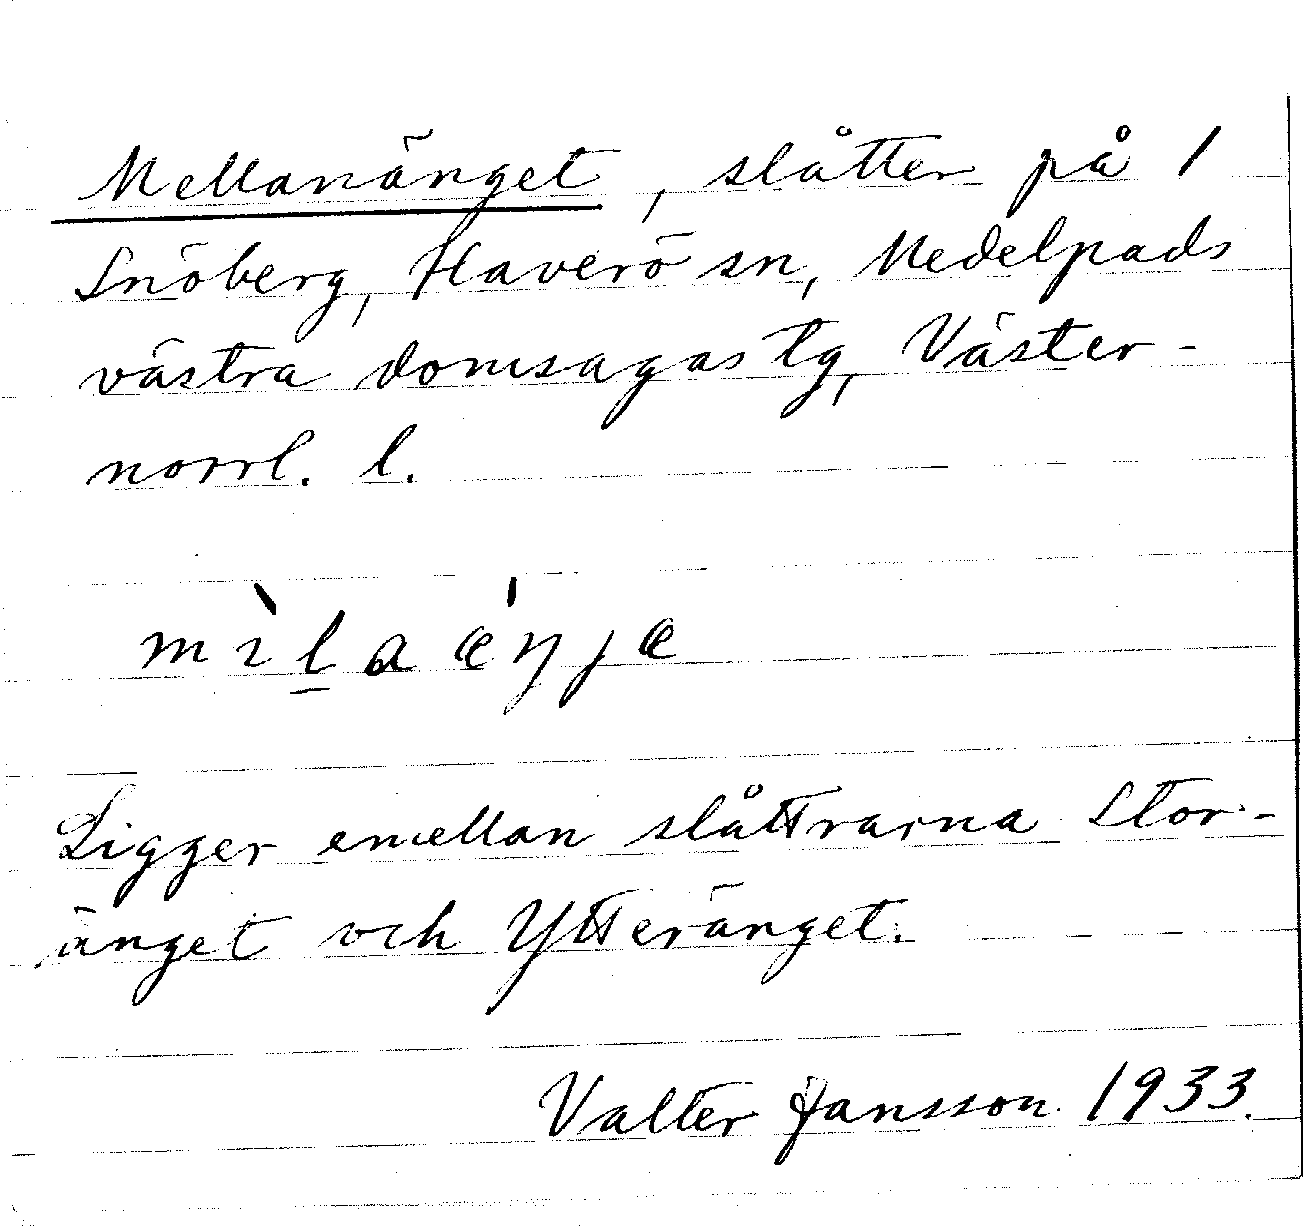 Mellanänget, slåtter på 1
Snöberg, Haverö sn, Medelpads
västra domsagas tg, Väster-
norrl. l.
mìḻaæ̍ŋjæ
Ligger emellan slåttrarna Stor-
änget och Ytteränget.
Valter Jansson 1933.